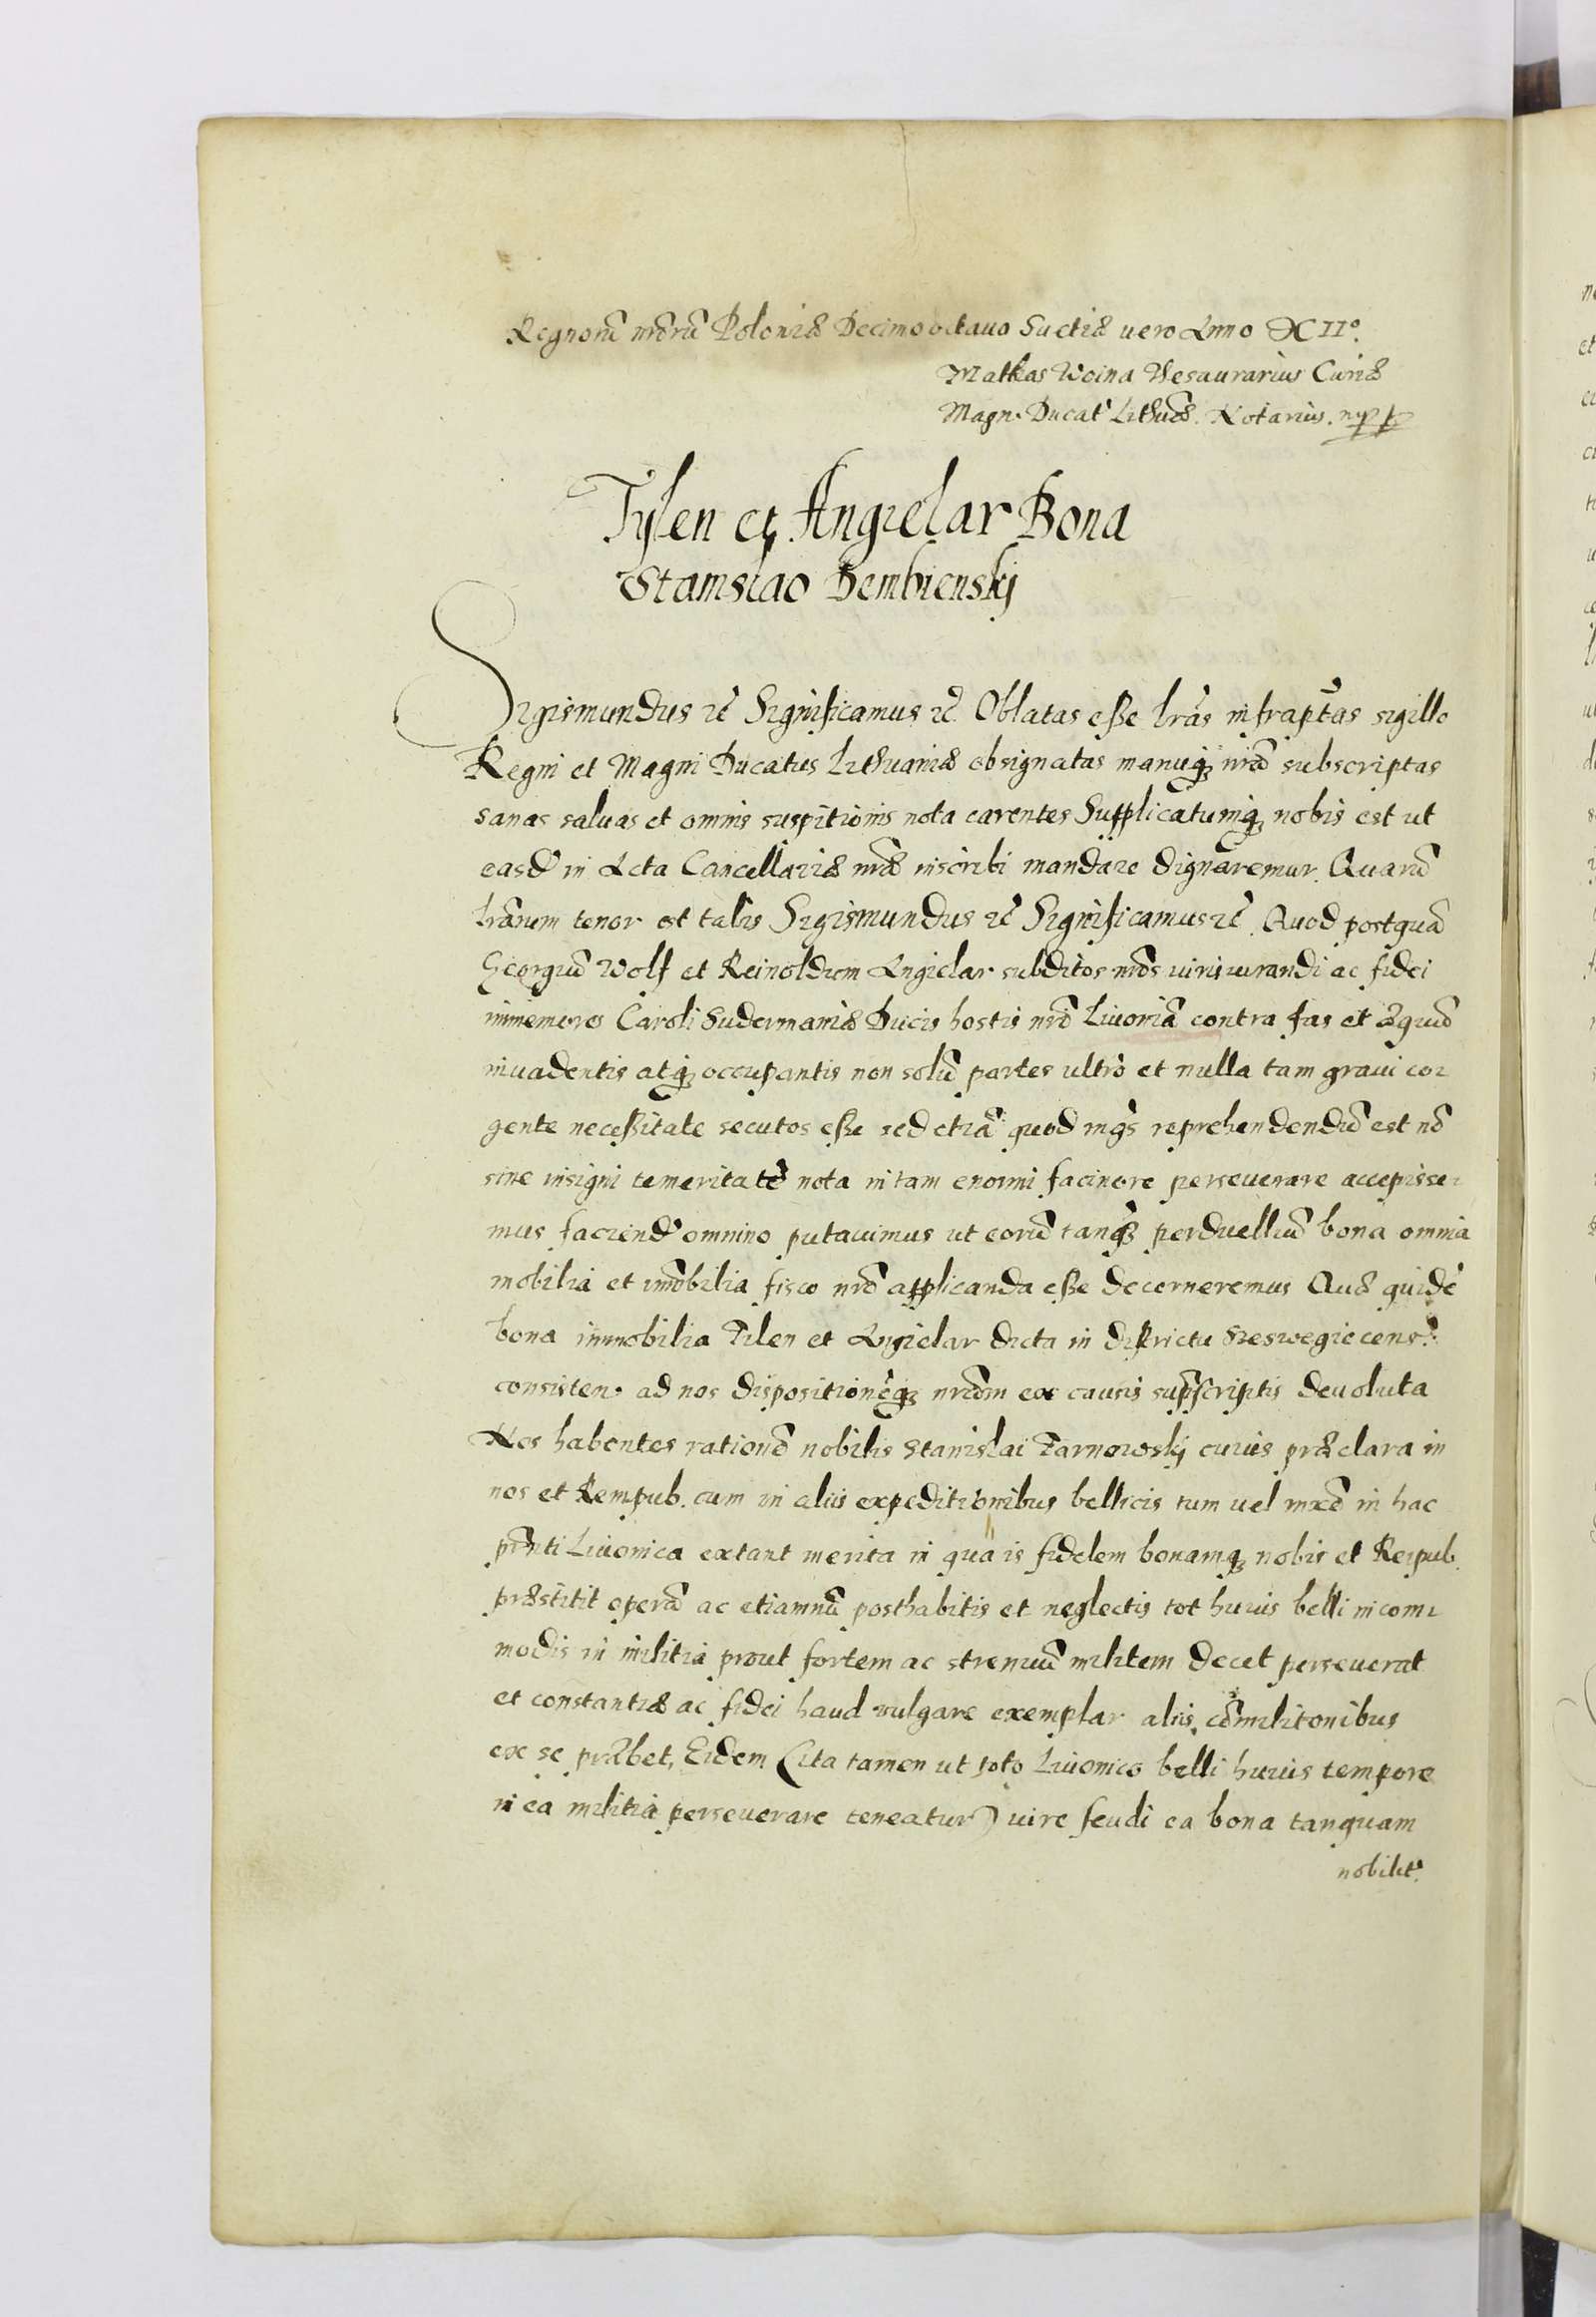 Regnorū nr̄orū Poloniæ Decimo octauo Suetiæ uero Anno XII°.
Mathias Woina Thesaurarius Curiæ
Magn. Ducat' Lithuæ. Notarius. mpp
Tylen et Angielar Bona
Stanislao Dembienskj
Sigismundus &c̄ Significamus &c̄. Oblatas eße lrās infrascptas sigillo
Regni et Magni Ducatus Lithuaniæ obsignatas manuq; nrā subscriptas
sanas saluas et omnis suspitionis nota carentes Supplicatumq; nobis est ut
easd' in Acta Cancellariæ nr̄æ inscribi mandare dignaremur. Quarū
lrārum tenor est talis Sigismundus &c̄ Significamus &c̄. Quod postquā
Georgiū Wolf et Reinoldum Angielar subditos nrōs iurisiurandi ac fidei
immemores Caroli Sudermaniæ Ducis hostis nrī Liuoniā contra fas et æquū
inuadentis atq; occupantis non solū partes ultrò et nulla tam graui co:
gente neceßitate secutos eße sed etiā quod mgs reprehendendū est nō
sine insigni temeritatē nota in tam enormi facinore perseuerare accepisse:
mus faciend' omnino putauimus ut eorū tanq; perduelliū bona omnia
mobilia et imōbilia fisco nrō applicanda eße decerneremus Quæ quidē
bona immobilia Tilen et Angielar dicta in districtu Szeswegiecens:
consisten: ad nos dispositionēq; nrām ex causis supscriptis deuoluta
Nos habentes rationē nobilis Stanislai Tarnowskj cuius præclara in
nos et Rempub. cum in aliis expeditionibus bellicis tum uel mxē in hac
prn̄ti Liuonica extant merita in qua is fidelem bonamq; nobis et Reipub.
præstitit operā ac etiamnū posthabitis et neglectis tot huius belli incom:
modis in militia prout fortem ac strenuū militem decet perseuerat
et constantiæ ac fidei haud vulgare exemplar aliis cōmilitonibus
ex se præbet, Eidem (ita tamen ut toto Liuonico belli huius tempore
in ea militia perseuerare teneatur) iure feudi ea bona tanquam
nobilit'.